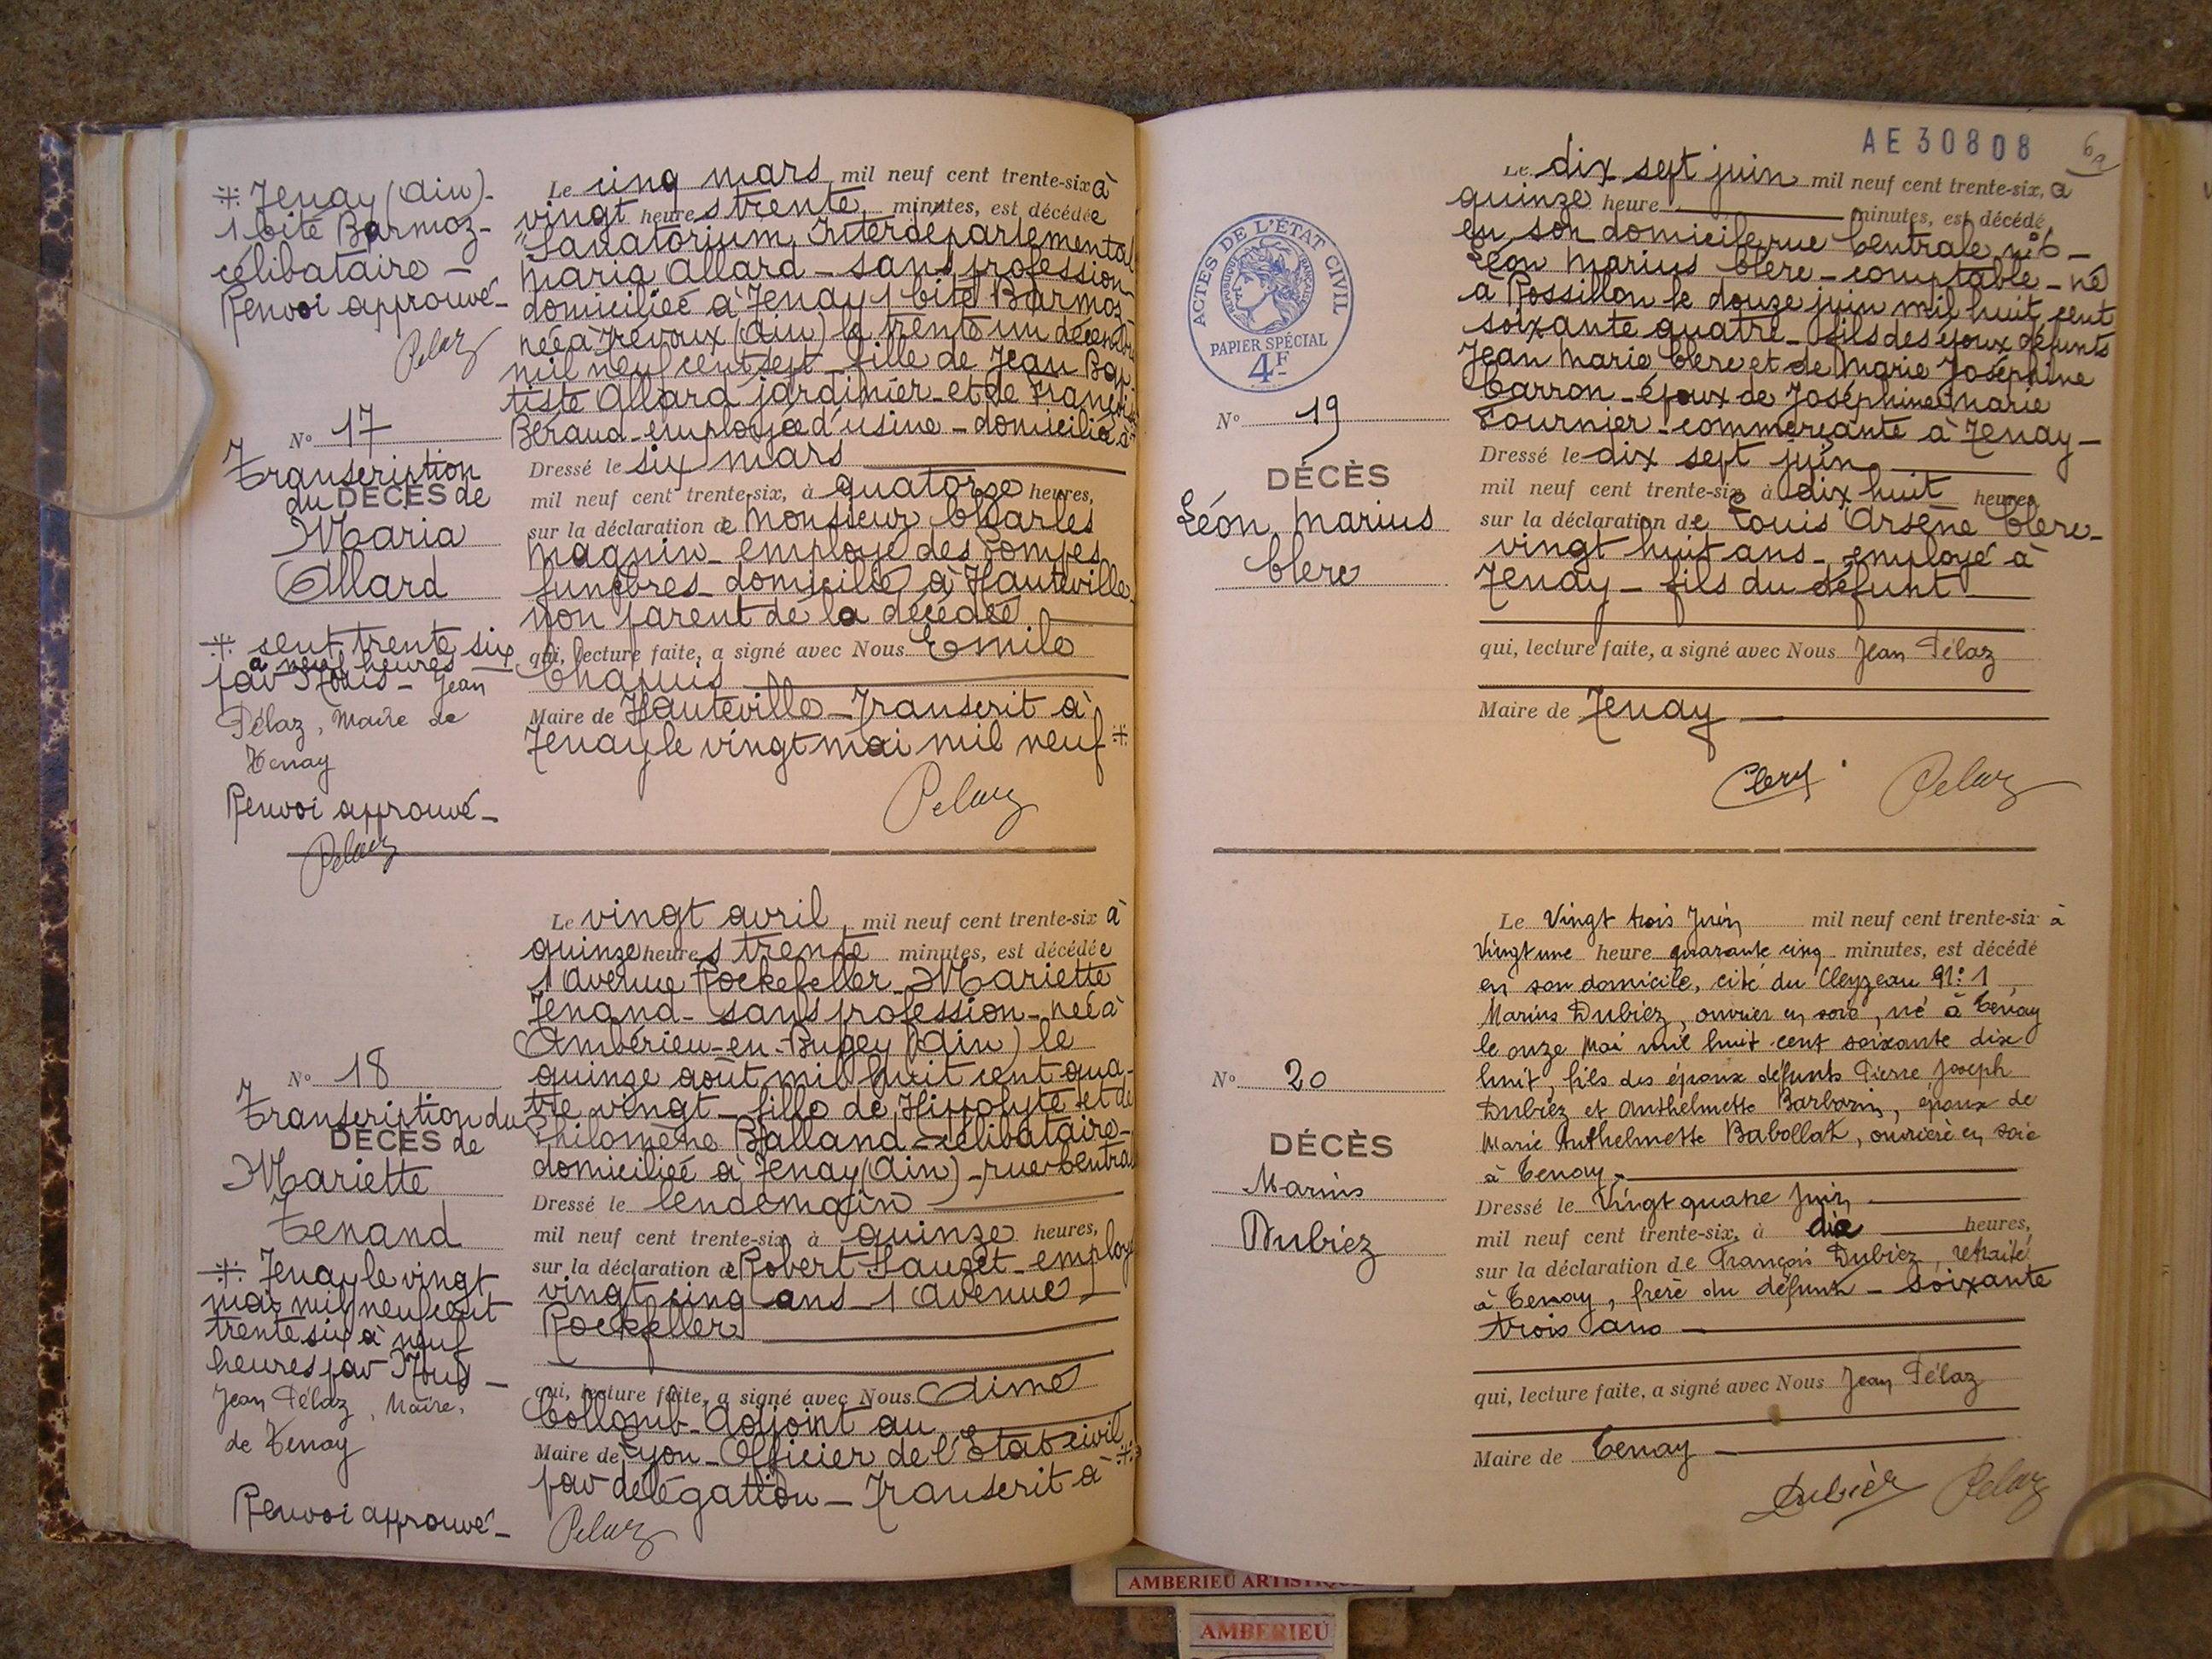 * Tenay (Ain)-
1 Cité Barmoz-
célibataire -
Renvoi approuvé-
Pelaz
Le cinq mars mil neuf cent trente-six à
vingt heures trente minutes, est décédée
Sanatorium Interdépartemental
Maria Allard - sans profession
domiciliée à Tenay 1 Cité Barmoz
née à Trévoux (Ain) le trente un décembre
mil neuf cent sept - fille de Jean Bap
tiste Allard jardinier - et de
Béraud - employée d'usine - domiciliés à
N° 17
Transcription
du DÉCÈS de
Maria
Allard
Dressé le six mars
mil neuf cent trente-six, à quatorze heures,
sur la déclaration de Monsieur Charles
Magnin - employé des Pompes
funèbres - domicilié à Hauteville
non parent de la décédée
qui, lecture faite, a signé avec Nous Emile
Chapuis
Maire de Hauteville - Transcrit à
Tenay le vingt mai mil neuf *
Pelaz
* cent trente six
à neuf heures
par Nous - Jean
Pélaz, Maire de
Tenay
Renvoi approuvé -
Pelaz
Le vingt avril mil neuf cent trente-six à
quinze heures trente minutes, est décédée
1 avenue Rockefeller - Mariette
Tenand - sans profession - née à
Ambérieu-en-Bugey (Ain) le
quinze août mil huit cent qua-
tre vingt - fille de Hippolyte et de
Philomène Balland - célibataire -
domiciliée à Tenay (Ain) - rue Centrale
N° 18
Transcription du
DÉCÈS de
Mariette
Tenand
Dressé le lendemain
mil neuf cent trente-six, à quinze heures,
sur la déclaration de Robert Sauzet - employé
vingt cinq ans - 1 avenue
Rockefeller
qui, lecture faite, a signé avec Nous Aimé
Collomb - Adjoint au
Maire de Lyon - Officier de l'Etat civil *
par délégation - Transcrit à
Pelaz
* Tenay le vingt
mai mil neuf cent
trente six à neuf
heures par Nous -
Jean Pélaz, Maire,
de Tenay
Renvoi approuvé -
AE 30808
ACTES DE L'ÉTAT CIVIL
RÉPUBLIQUE FRANÇAISE
PAPIER SPÉCIAL
4F
Le dix sept juin mil neuf cent trente-six, à
quinze heure minutes, est décédé
en son domicile rue Centrale n° 6 -
Léon Marius Clerc - comptable - né
à Rossillon le douze juin mil huit cent
soixante quatre - fils des époux défunts
Jean Marie Clerc et de Marie Joséphine
Carron - époux de Joséphine Marie
Fournier - commerçante à Tenay -
N° 19
DÉCÈS
Léon Marius
Clerc
Dressé le dix sept juin
mil neuf cent trente-six à dix huit heures
sur la déclaration de Louis Arsène Clerc -
vingt huit ans - employé à
Tenay - fils du défunt
qui, lecture faite, a signé avec Nous Jean Pélaz
Maire de Tenay
Clerc Pelaz
Le Vingt trois Juin mil neuf cent trente-six à
Vingt une heure quarante cinq minutes, est décédé
en son domicile, cité du Cleyzeau N° 1
Marius Dubiez, ouvrier en soie, né à Tenay
le onze Mai mil huit cent soixante dix
huit, fils des époux défunts Pierre Joseph
Dubiez et Anthelmette Barbarin, époux de
Marie Anthelmette Babollat, ouvrière en soie
à Tenay -
N° 20
DÉCÈS
Marius
Dubiez
Dressé le Vingt quatre Juin
mil neuf cent trente-six, à dix heures,
sur la déclaration de François Dubiez, retraité
à Tenay, frère du défunt - soixante
trois ans
qui, lecture faite, a signé avec Nous Jean Pélaz
Maire de Tenay
Dubièz Pelaz
AMBERIEU
AMBERIEU